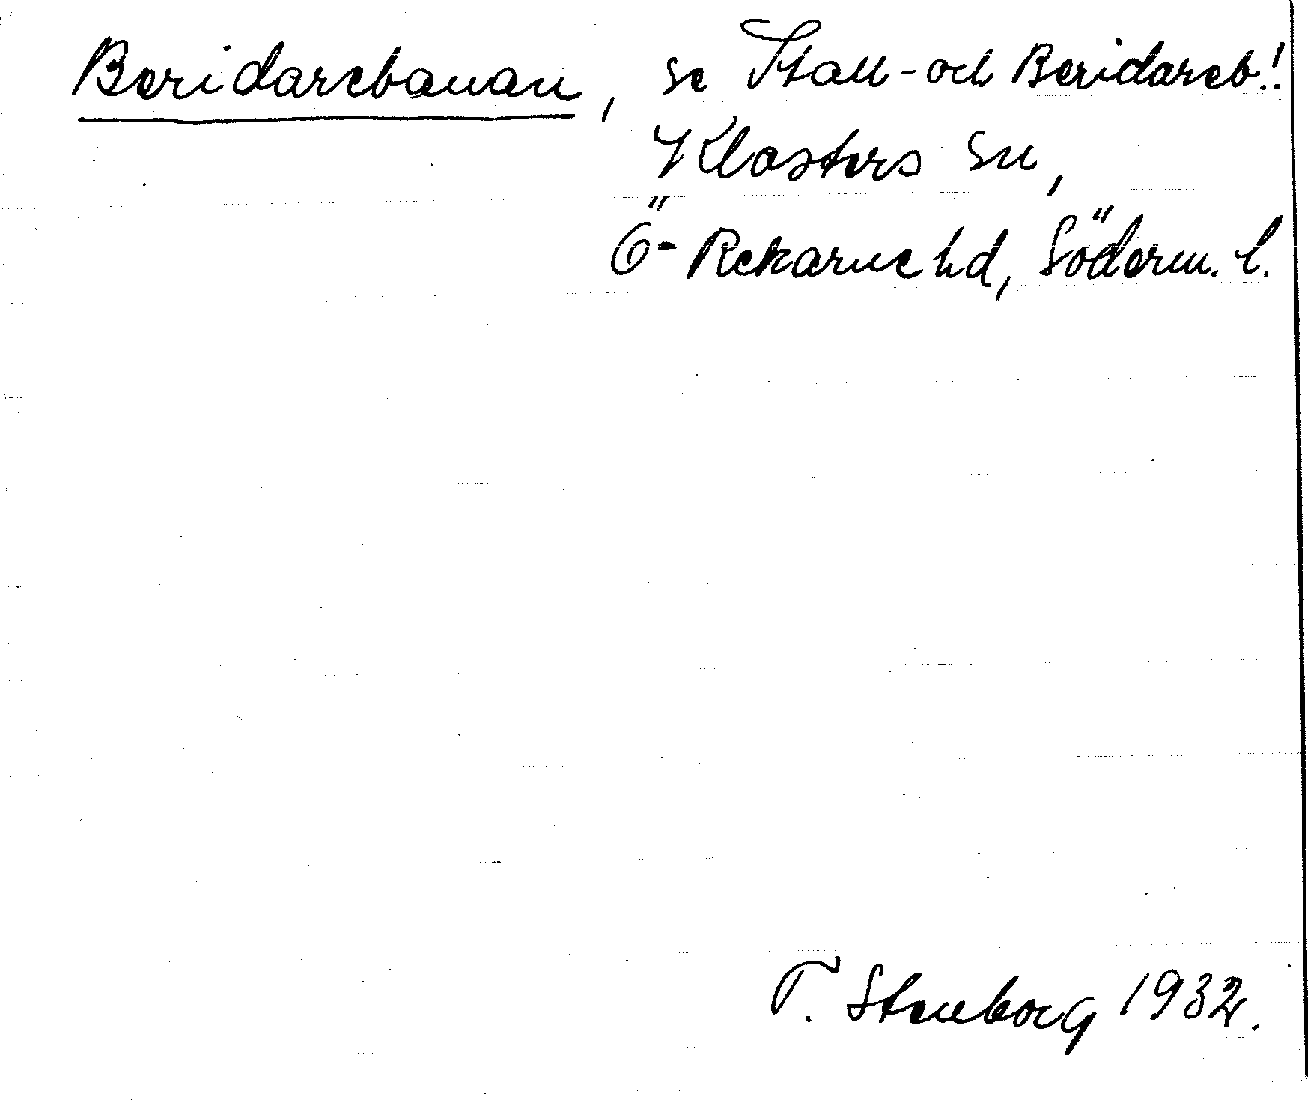 Beridarebanan, se Stall- och Beridareb.!
Klosters sn,
Ö-Rekarne hd, Söderm. l.
T. Stenborg 1932.